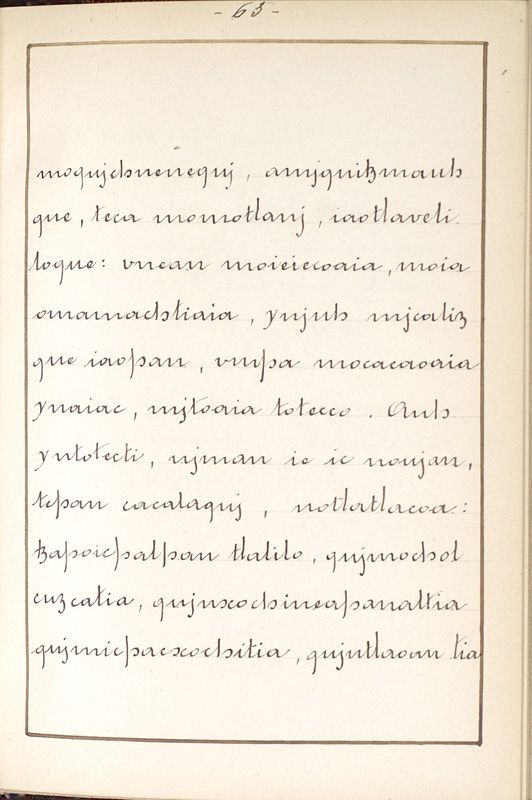 - 65 -
moqujchnenequj, amjquitzmauh
que, teca momotlanj, iaotlaveli
loque: vncan moieiecoaia, moia
omamachtiaia, ynjuh mjcaliz
que iaopan, vmpa mocacaoaia
ynaiac, mjtoaia totecco. Auh
yntotecti, njman ie ic noujan,
tepan cacalaquj, notlatlacoa:
tzapoicpalpan tlalilo, qujmochol
cuzcatia, qujnxochineapanaltia
qujmicpacxochitia, qujntlaoan tia